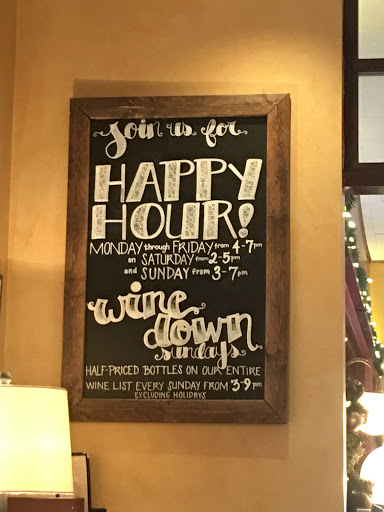 Join us for
HAPPY
HOUR!
MONDAY through FRIDAY from 4-7pm
on SATURDAY from 2-5pm
and SUNDAY from 3-7pm
wine
down
sundays
HALF-PRICED BOTTLES ON OUR ENTIRE
WINE LIST EVERY SUNDAY FROM 3-9pm
EXCLUDING HOLIDAYS